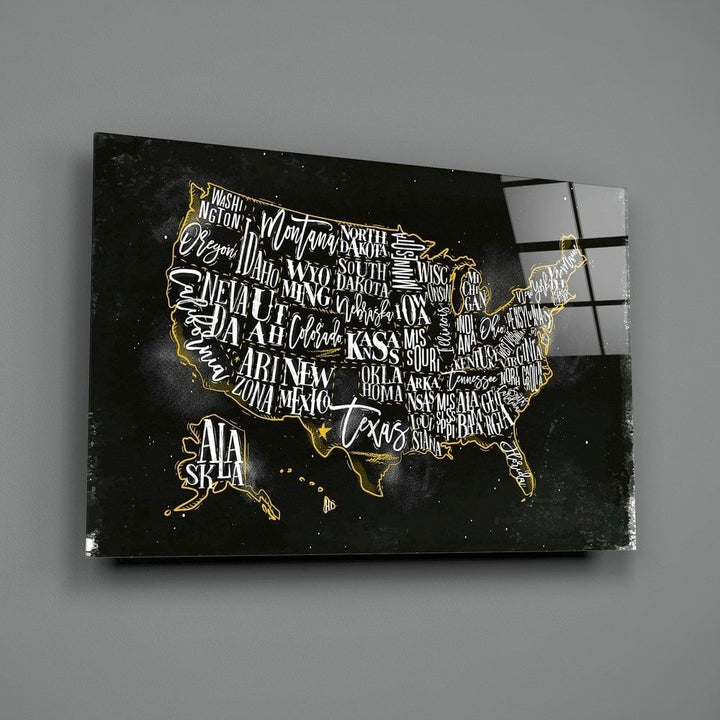 WASHI
NGTON
Oregon
California
IDAHO
NEVA
DA
Montana
WYO
MING
UT
AH
Colorado
ARI
ZONA
NEW
MEXICO
NORTH
DAKOTA
SOUTH
DAKOTA
Nebraska
KANSAS
OKLA
HOMA
Texas
WISC
MIS
SOURI
ARKA
NSAS
LOUI
SIANA
Illinois
MI
CHI
GAN
INDI
ANA
Ohio
KENTUCKY
Tennessee
MIS
ALA
BA
GEO
RGIA
Florida
VIRGINIA
ALA
SKA